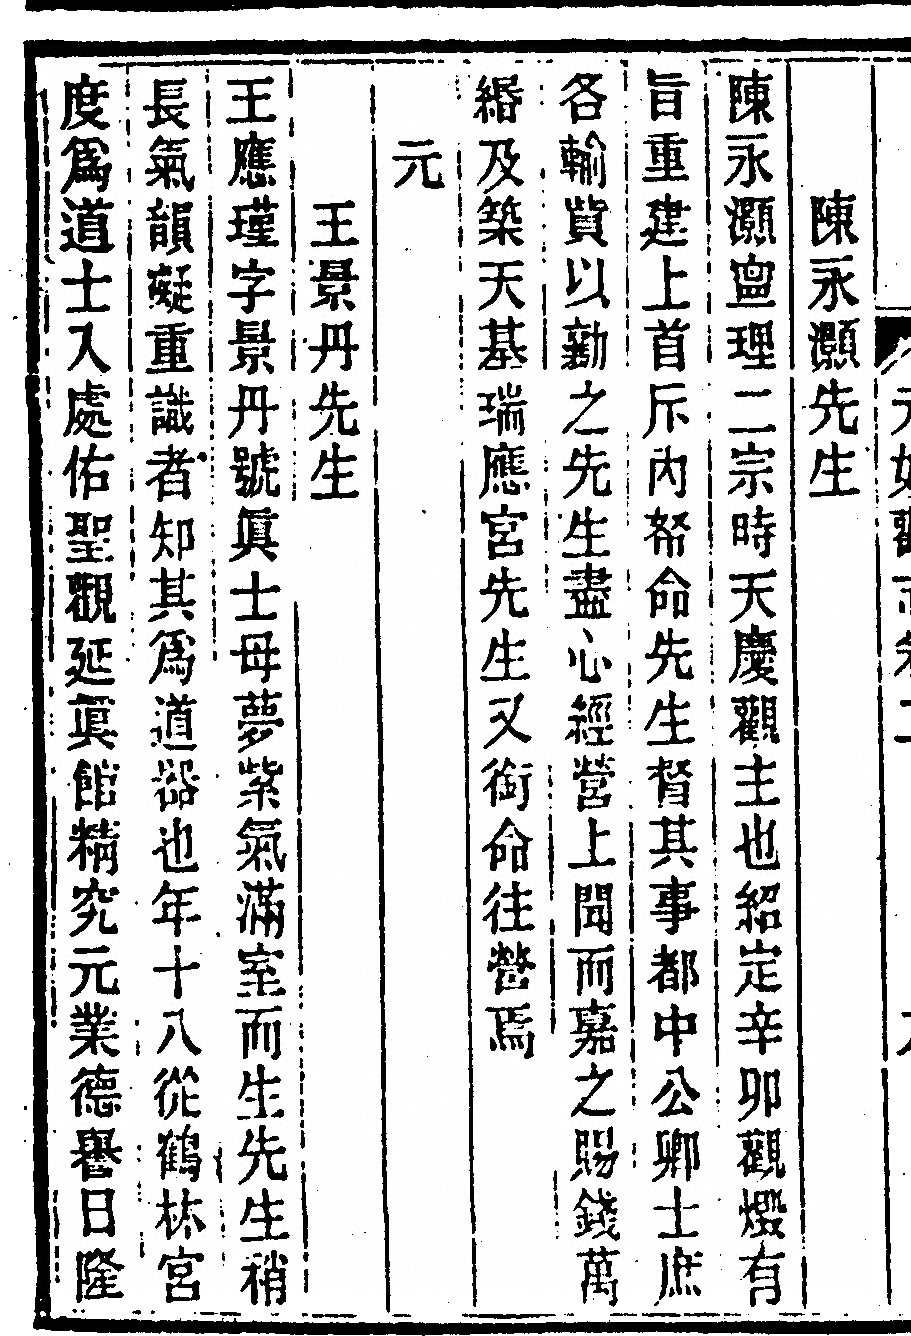 陳永灝先生
陳永灝亶理二宗時天慶觀主也紹定辛卯觀燬有
旨重建上首斥內帑命先生督其事都中公卿士庶
各輸貲以勸之先生盡心經營上聞而嘉之賜錢萬
緡及築天基瑞應宮先生又銜命往營焉
元
王景丹先生
王應瑾字景丹號眞士母夢紫氣滿室而生先生稍
長氣韻凝重識者知其爲道器也年十八從鶴林宮
度爲道士入處佑聖觀延眞館精究元業德譽日隆